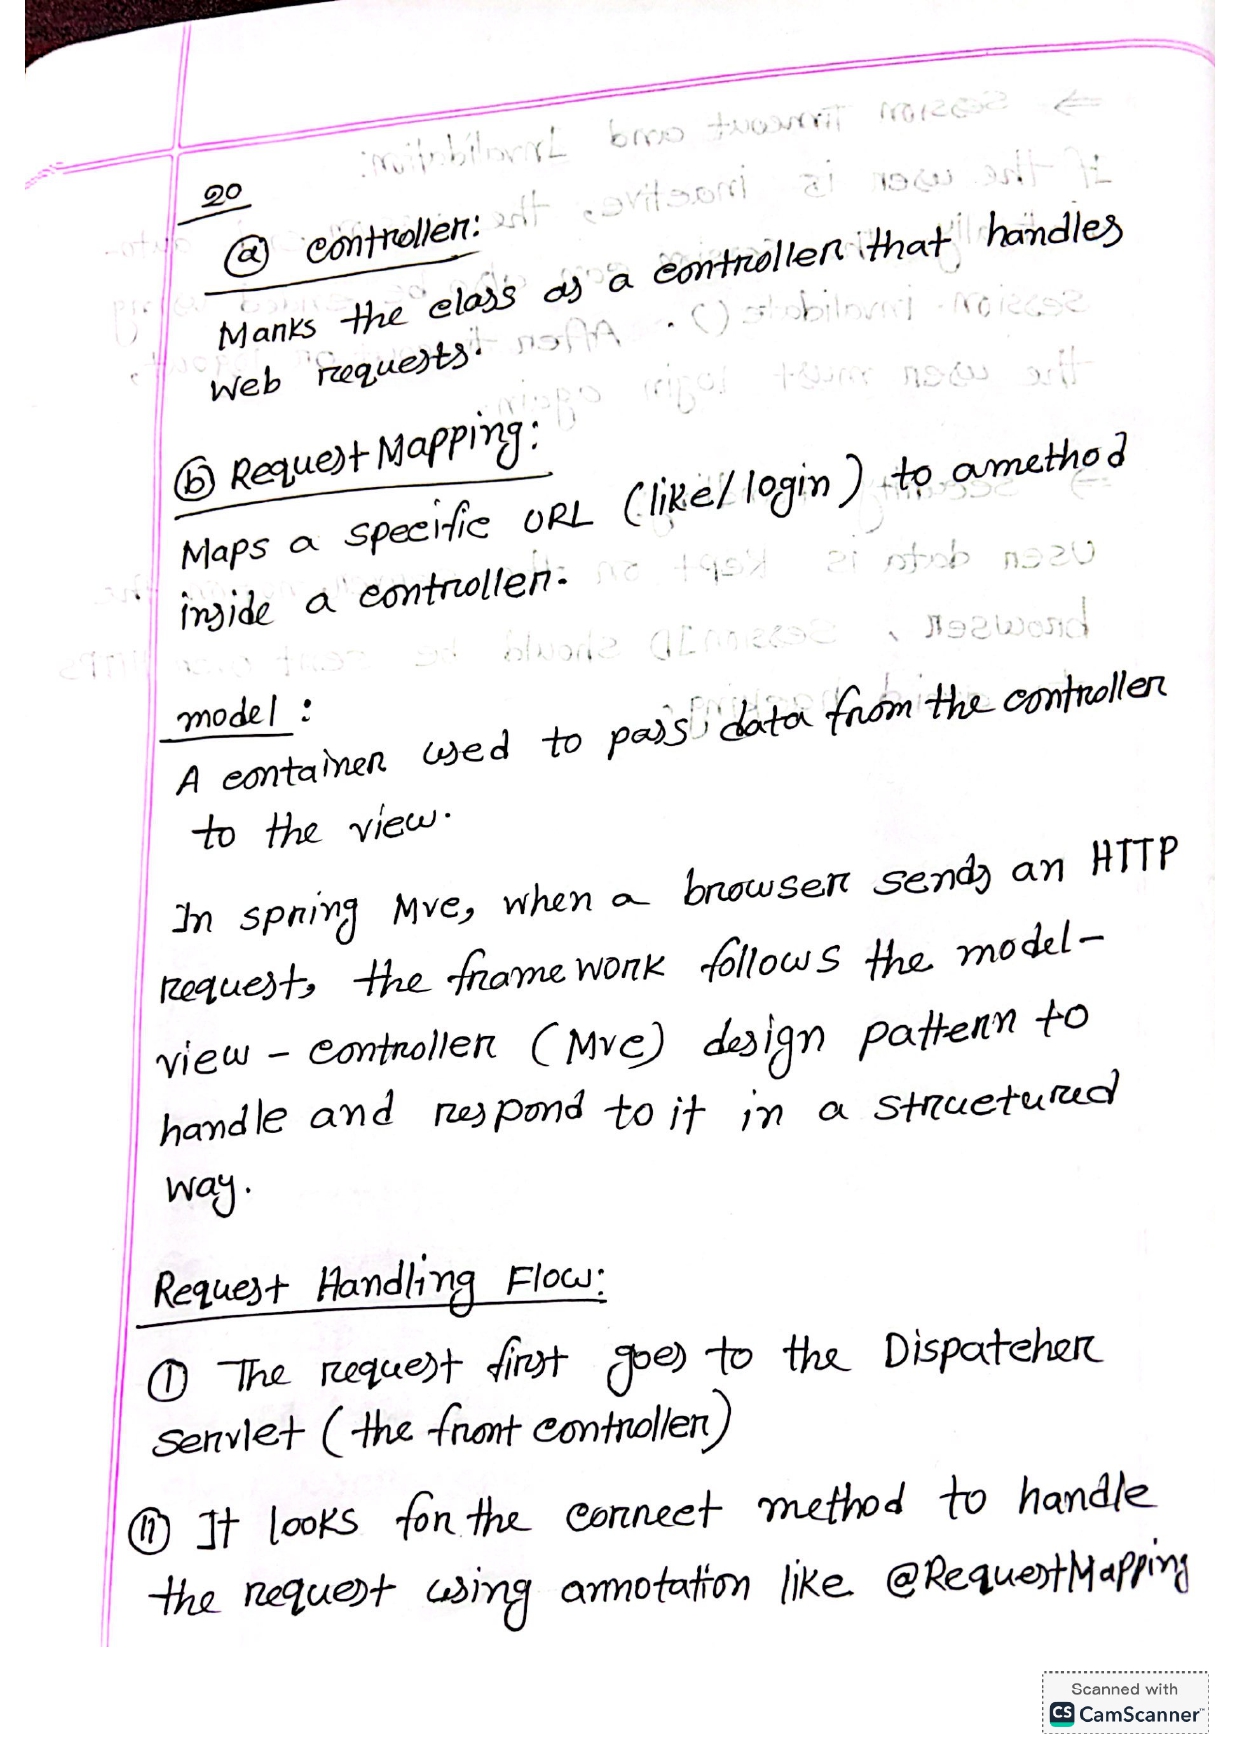 20
ⓐ Controller:
Marks the class as a controller that handles
Web requests.
ⓑ Request Mapping:
Maps a specific URL (like/login) to a method
inside a controller.
model :
A container used to pass data from the controller
to the view.
In spring Mvc, when a browser sends an HTTP
request, the framework follows the model-
view - controller (Mvc) design pattern to
handle and respond to it in a structured
way.
Request Handling Flow:
① The request first goes to the Dispatcher
servlet (the front controller)
⑪ It looks for the correct method to handle
the request using annotation like @RequestMapping
Scanned with
CS CamScanner